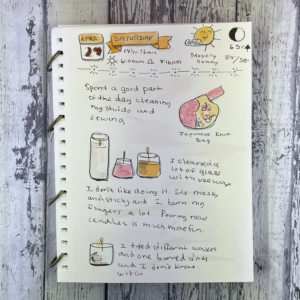 APRIL
29
SATURDAY
Mostly
Sunny
65%
Spent a good part
of the day cleaning
my studio and
sewing.
Japanese Knot
Bag
I cleaned a
lot of glass
with use wax
I don't like doing it. It's messy
and sticky and I burn my
fingers a lot. Pouring new
candles is much more fun.
I tried different waxes
and one burned
and I don't know
which